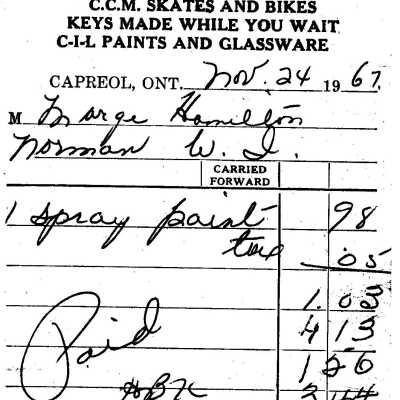 C.C.M. SKATES AND BIKES
KEYS MADE WHILE YOU WAIT
C-I-L PAINTS AND GLASSWARE
CAPREOL, ONT. Nov. 24 1967.
M Marge Hamilton
Norman W. I.
CARRIED
FORWARD
1 spray paint 98
tax .05
1.03
4 13
Paid 1 26